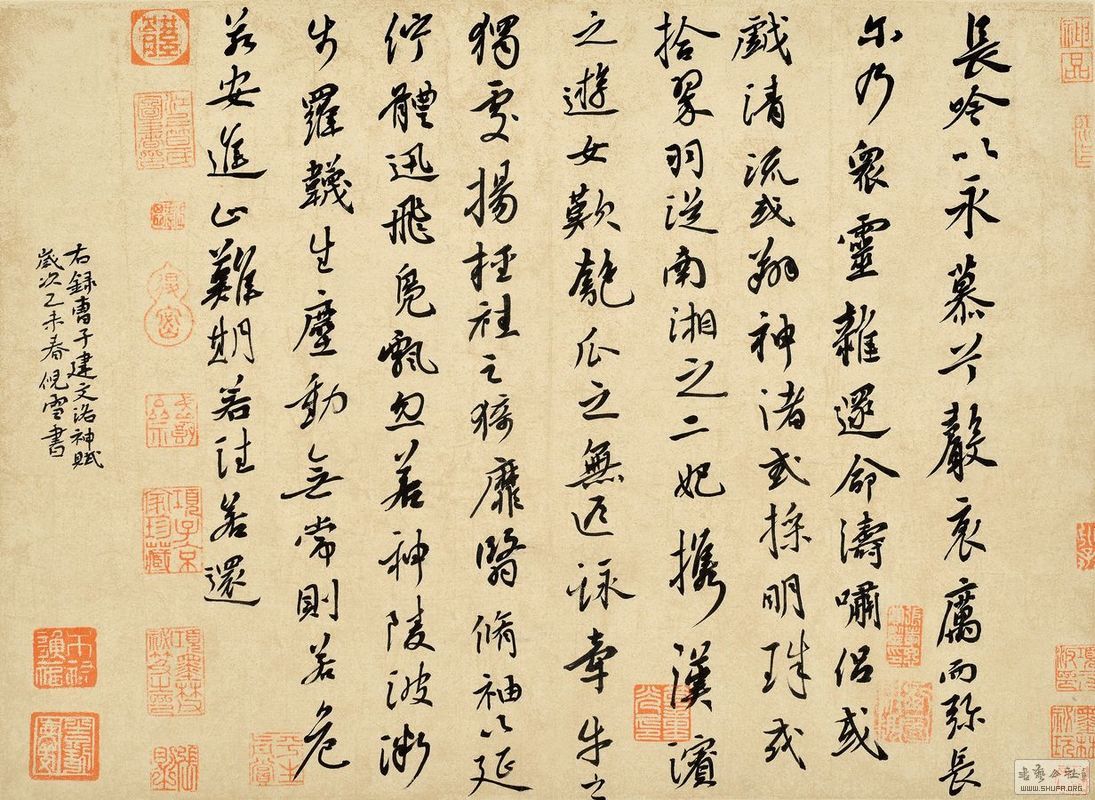 長吟以永慕兮聲哀厲而弥長
尒乃衆靈雜遝命濤嘯侶或
戲清流或翔神渚或採明珠或
拾翠羽從南湘之二妃攜漢濱
之遊女歎匏瓜之無匹詠牽牛之
獨處揚輕袿之猗靡翳脩袖以延
佇體迅飛鳧飄忽若神陵波微
步羅韈生塵動無常則若危
若安進止難期若往若還
右録曹子建文洛神賦
歲次乙未春倪雲書
神品
項子京家珍藏
WWW.SHUFA.ORG